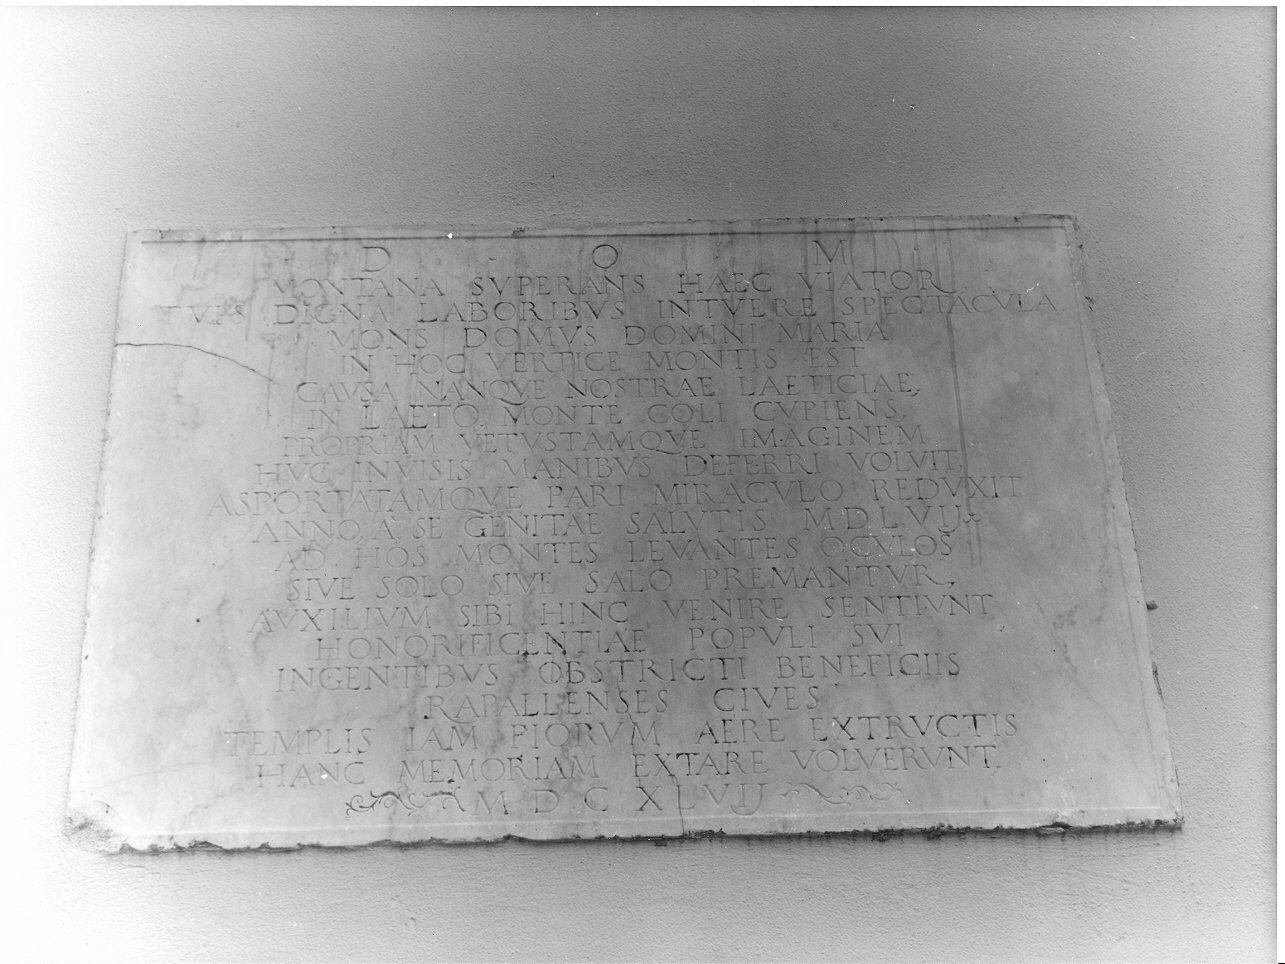 D O M
MONTANA SVPERANS HAEC VIATOR
TVIS DIGNA LABORIBVS INTVERE SPECTACVLA
MONS DOMVS DOMINI MARIA
IN HOC VERTICE MONTIS EST
CAVSA NANQVE NOSTRAE LAETICIAE
IN LAETO MONTE COLI CVPIENS
PROPRIAM VETVSTAMQVE IMAGINEM
HVC INVISIS MANIBVS DEFERRI VOLVIT
ASPORTATAMQVE PARI MIRACVLO REDVXIT
ANNO A SE GENITAE SALVTIS MDLVIJ
AD HOS MONTES LEVANTES OCVLOS
SIVE SOLO SIVE SALO PREMANTVR
AVXILIVM SIBI HINC VENIRE SENTIVNT
HONORIFICENTIAE POPVLI SVI
INGENTIBVS OBSTRICTI BENEFICIIS
RAPALLENSES CIVES
TEMPLIS IAM PIORVM AERE EXTRVCTIS
HANC MEMORIAM EXTARE VOLVERVNT
M D C XLVIJ